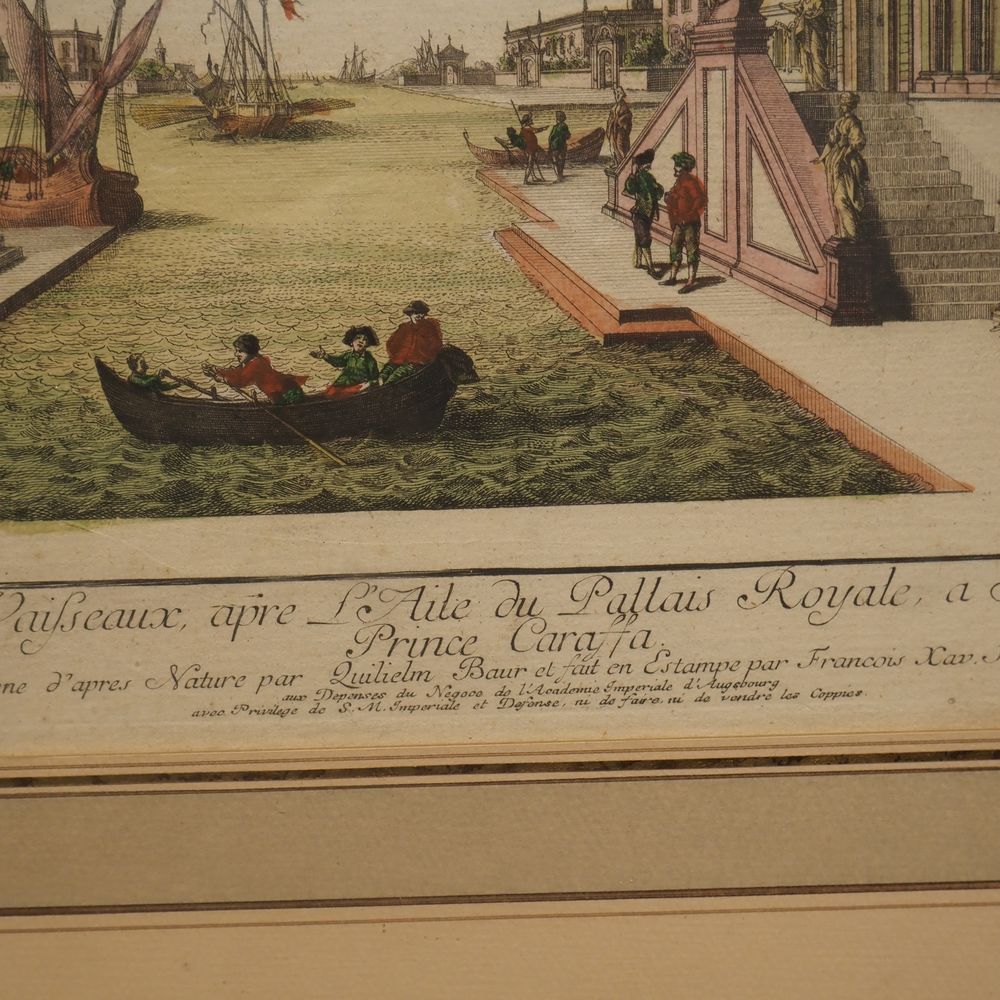 Vaisseaux, apre L'Aile du Pallais Royale, a
Prince Caraffa.
ne d'apres Nature par Quilielm Baur et fait en Estampe par Francois Xav.
aux Depenses du Negoce de l'Academie Imperiale d'Augsbourg
avec Privilege de S. M. Imperiale et Defense, ni de faire, ni de vendre les Coppies.